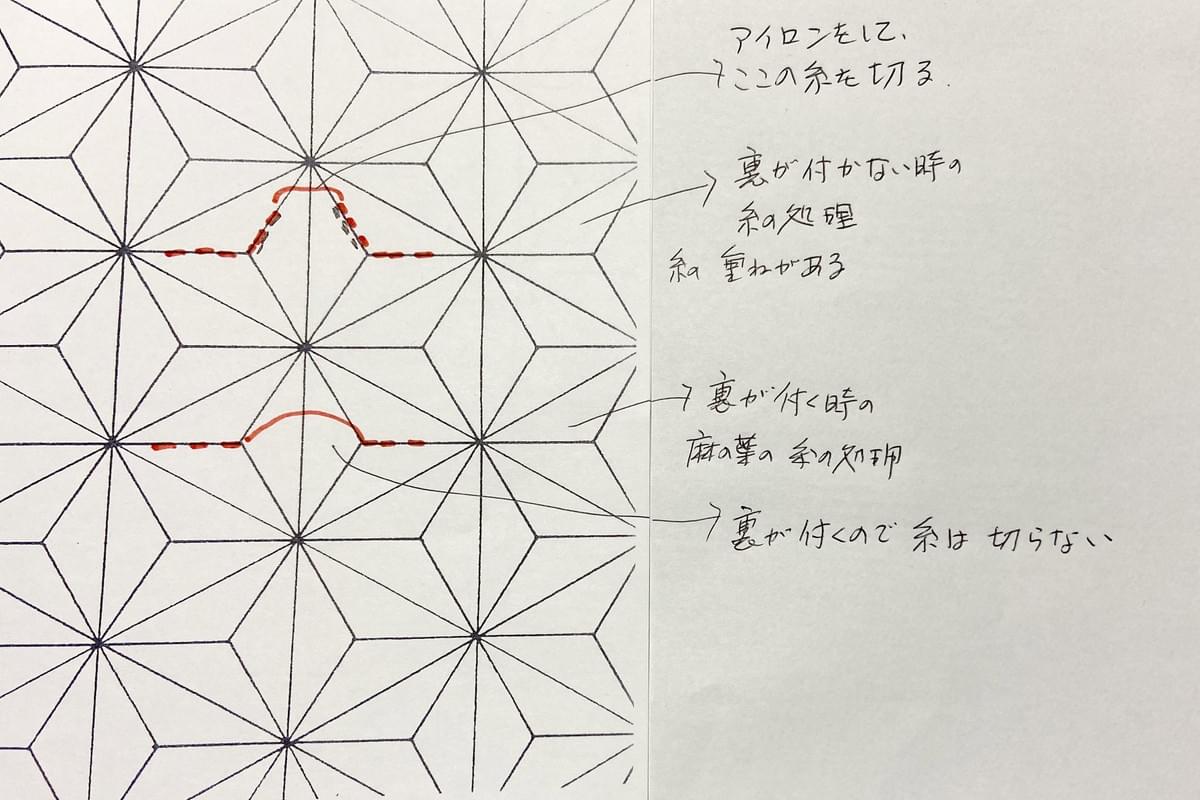 アイロンをして、
ここの糸を切る.
裏が付かない時の
糸の処理
糸の重ねがある
裏が付く時の
麻の葉の糸の処理
裏が付くので糸は切らない